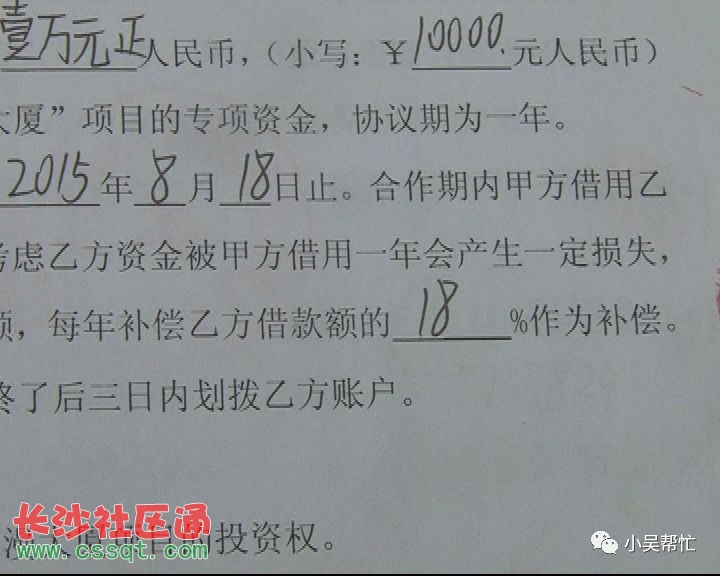 壹万元正人民币，（小写：￥10000.元人民币）
大厦”项目的专项资金，协议期为一年。
2015年8月18日止。合作期内甲方借用乙
考虑乙方资金被甲方借用一年会产生一定损失，
额，每年补偿乙方借款额的18%作为补偿。
终了后三日内划拨乙方账户。
项目的投资权。
长沙社区通
www.cssqt.com
小吴帮忙